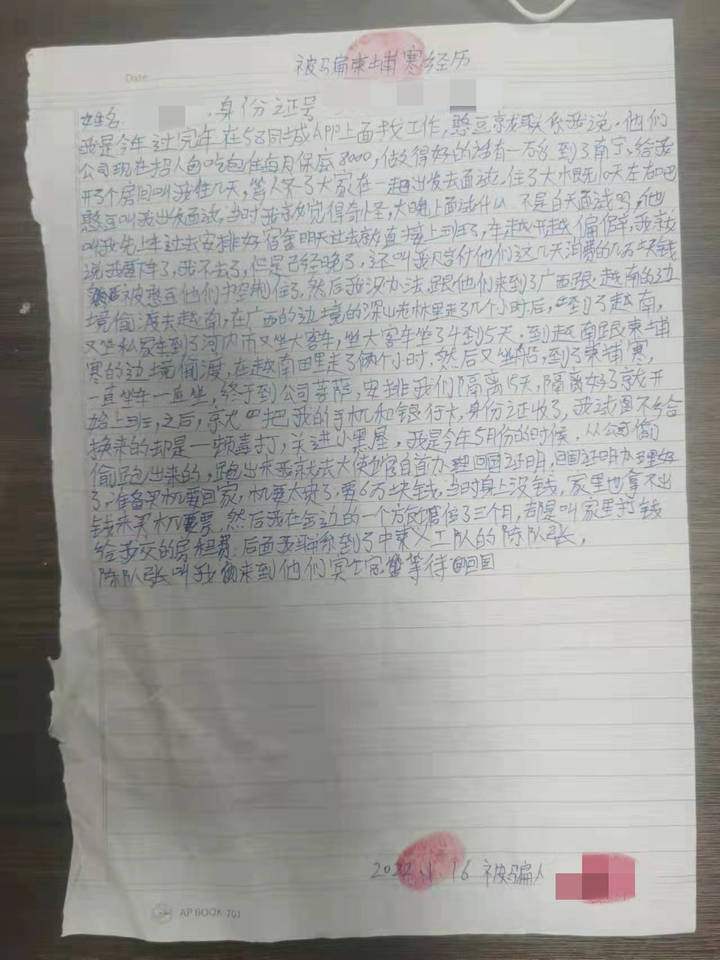 被骗柬埔寨经历
Date
姓名 身份证号
我是今年过完年在58同城APP上面找工作,憨豆就联系我说.他们
公司现在招人包吃包住每月保底8000,做得好的没有一万多,到了南宁、给我
开了个房间叫我住几天,等人齐了大家在一起出发去面试.住了大概10天左右吧
憨豆叫我出发面试,当时我就觉得奇怪,大晚上面试什么,不是白天面试吗,他
叫我先上车过去安排好宿舍明天过去就直接上班了,车越开越偏僻,我就
说我下车了,我不去了,但是已经晚了,还叫我支付他们这几天消费的几万块钱
被憨豆他们控制住了,然后我没办法,跟他们来到了广西跟越南的边
境偷渡去越南,在广西的边境的深山老林里走了几个小时后,到了越南,
又坐私家车到了河内而又坐大客车,坐大客车坐了4到5天,到越南跟柬埔
寨的边境偷渡,在越南田里走了俩个小时.然后又坐船,到了柬埔寨,
一直坐车一直坐,终于到公司菩萨,安排我们隔离15天,隔离好了就开
始上班,之后,就把我的手机和银行卡,身份证收了,我试图不给
换来的却是一顿毒打,关进小黑屋,我是今年5月份的时候,从公司偷
偷跑出来的,跑出来我就去大使馆自首办理回国证明,回国证明办理好
了,准备买机票回家,机票太贵了,要6万块钱,当时身上没钱,家里也拿不出
钱来买机票,然后我在金边的一个方舱住了三个月,都是叫家里打钱
给我交的房租费.后面我联系到了中柬义工队的陈队张,
陈队张叫我来到他们宾馆等待回国
2022.11.16 被骗人
AP BOOK 701